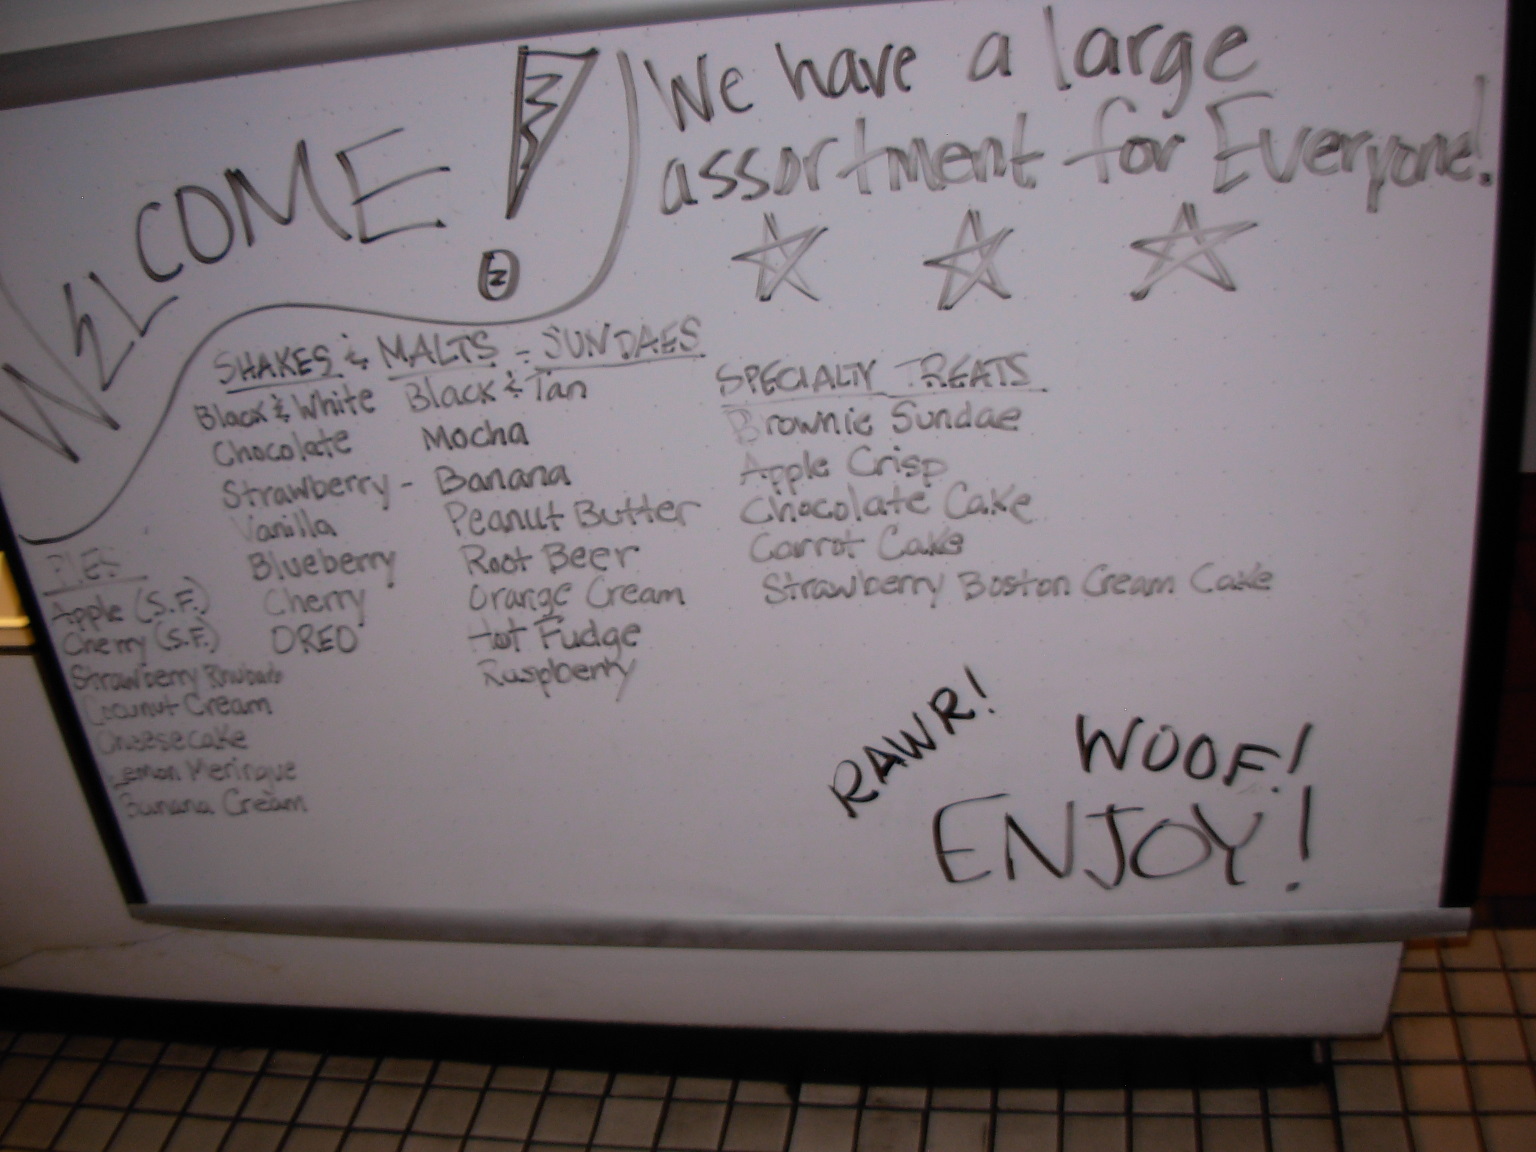 WELCOME!
We have a large
assortment for Everyone!
SHAKES & MALTS - SUNDAES
Black & White
Chocolate
Strawberry -
Vanilla
Blueberry
Cherry
OREO
Black & Tan
Mocha
Banana
Peanut Butter
Root Beer
Orange Cream
Hot Fudge
Raspberry
SPECIALTY TREATS
Brownie Sundae
Apple Crisp
Chocolate Cake
Carrot Cake
Strawberry Boston Cream Cake
PIES
Apple (S.F.)
Cherry (S.F.)
Strawberry Rhubarb
Coconut Cream
Cheesecake
Lemon Meringue
Banana Cream
RAWR!
WOOF!
ENJOY!